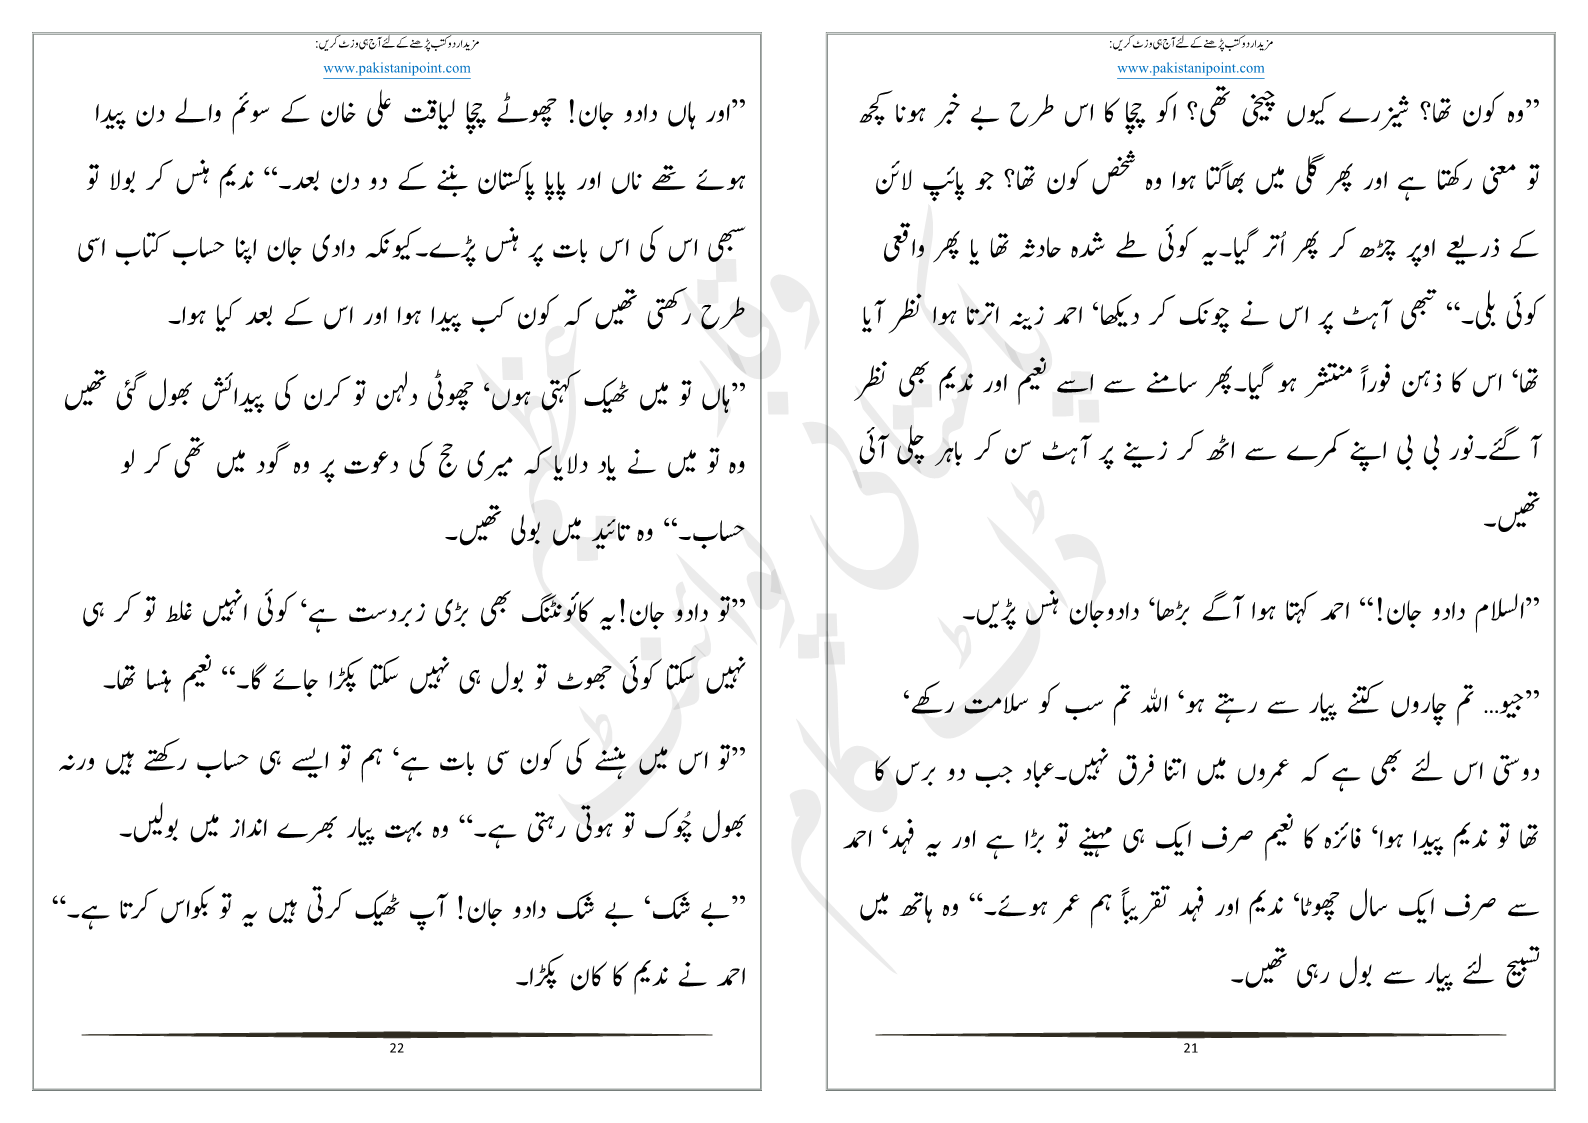 مزید اردو کتب پڑھنے کے لئے آج ہی وزٹ کریں:
www.pakistanipoint.com
”وہ کون تھا؟ شیزرے کیوں چیخی تھی؟ اکو چچا کا اس طرح بے خبر ہونا کچھ
تو معنی رکھتا ہے اور پھر گلی میں بھاگتا ہوا وہ شخص کون تھا؟ جو پائپ لائن
کے ذریعے اوپر چڑھ کر پھر اُتر گیا۔یہ کوئی طے شدہ حادثہ تھا یا پھر واقعی
کوئی بلی۔“ تبھی آہٹ پر اس نے چونک کر دیکھا‘ احمد زینہ اترتا ہوا نظر آیا
تھا‘ اس کا ذہن فوراً منتشر ہو گیا۔پھر سامنے سے اسے نعیم اور ندیم بھی نظر
آ گئے۔نور بی بی اپنے کمرے سے اٹھ کر زینے پر آہٹ سن کر باہر چلی آئی
تھیں۔
”السلام دادو جان!“ احمد کہتا ہوا آگے بڑھا‘ دادوجان ہنس پڑیں۔
”جیو... تم چاروں کتنے پیار سے رہتے ہو‘ اللہ تم سب کو سلامت رکھے‘
دوستی اس لئے بھی ہے کہ عمروں میں اتنا فرق نہیں۔عباد جب دو برس کا
تھا تو ندیم پیدا ہوا‘ فائزہ کا نعیم صرف ایک ہی مہینے تو بڑا ہے اور یہ فہد‘ احمد
سے صرف ایک سال چھوٹا‘ ندیم اور فہد تقریباً ہم عمر ہوئے۔“ وہ ہاتھ میں
تسبیح لئے پیار سے بول رہی تھیں۔
21
مزید اردو کتب پڑھنے کے لئے آج ہی وزٹ کریں:
www.pakistanipoint.com
”اور ہاں دادو جان! چھوٹے چچا لیاقت علی خان کے سوئم والے دن پیدا
ہوئے تھے ناں اور پاپا پاکستان بننے کے دو دن بعد۔“ ندیم ہنس کر بولا تو
سبھی اس کی اس بات پر ہنس پڑے۔کیونکہ دادی جان اپنا حساب کتاب اسی
طرح رکھتی تھیں کہ کون کب پیدا ہوا اور اس کے بعد کیا ہوا۔
”ہاں تو میں ٹھیک کہتی ہوں‘ چھوٹی دلہن تو کرن کی پیدائش بھول گئی تھیں
وہ تو میں نے یاد دلایا کہ میری حج کی دعوت پر وہ گود میں تھی کر لو
حساب۔“ وہ تائید میں بولی تھیں۔
”تو دادو جان!یہ کائونٹنگ بھی بڑی زبردست ہے‘ کوئی انہیں غلط تو کر ہی
نہیں سکتا کوئی جھوٹ تو بول ہی نہیں سکتا پکڑا جائے گا۔“ نعیم ہنسا تھا۔
”تو اس میں ہنسنے کی کون سی بات ہے‘ ہم تو ایسے ہی حساب رکھتے ہیں ورنہ
بھول چُوک تو ہوتی رہتی ہے۔“ وہ بہت پیار بھرے انداز میں بولیں۔
”بے شک‘ بے شک دادو جان! آپ ٹھیک کرتی ہیں یہ تو بکواس کرتا ہے۔“
احمد نے ندیم کا کان پکڑا۔
22
پاکستانی پوائنٹ ڈاٹ کام
وقار عظیم